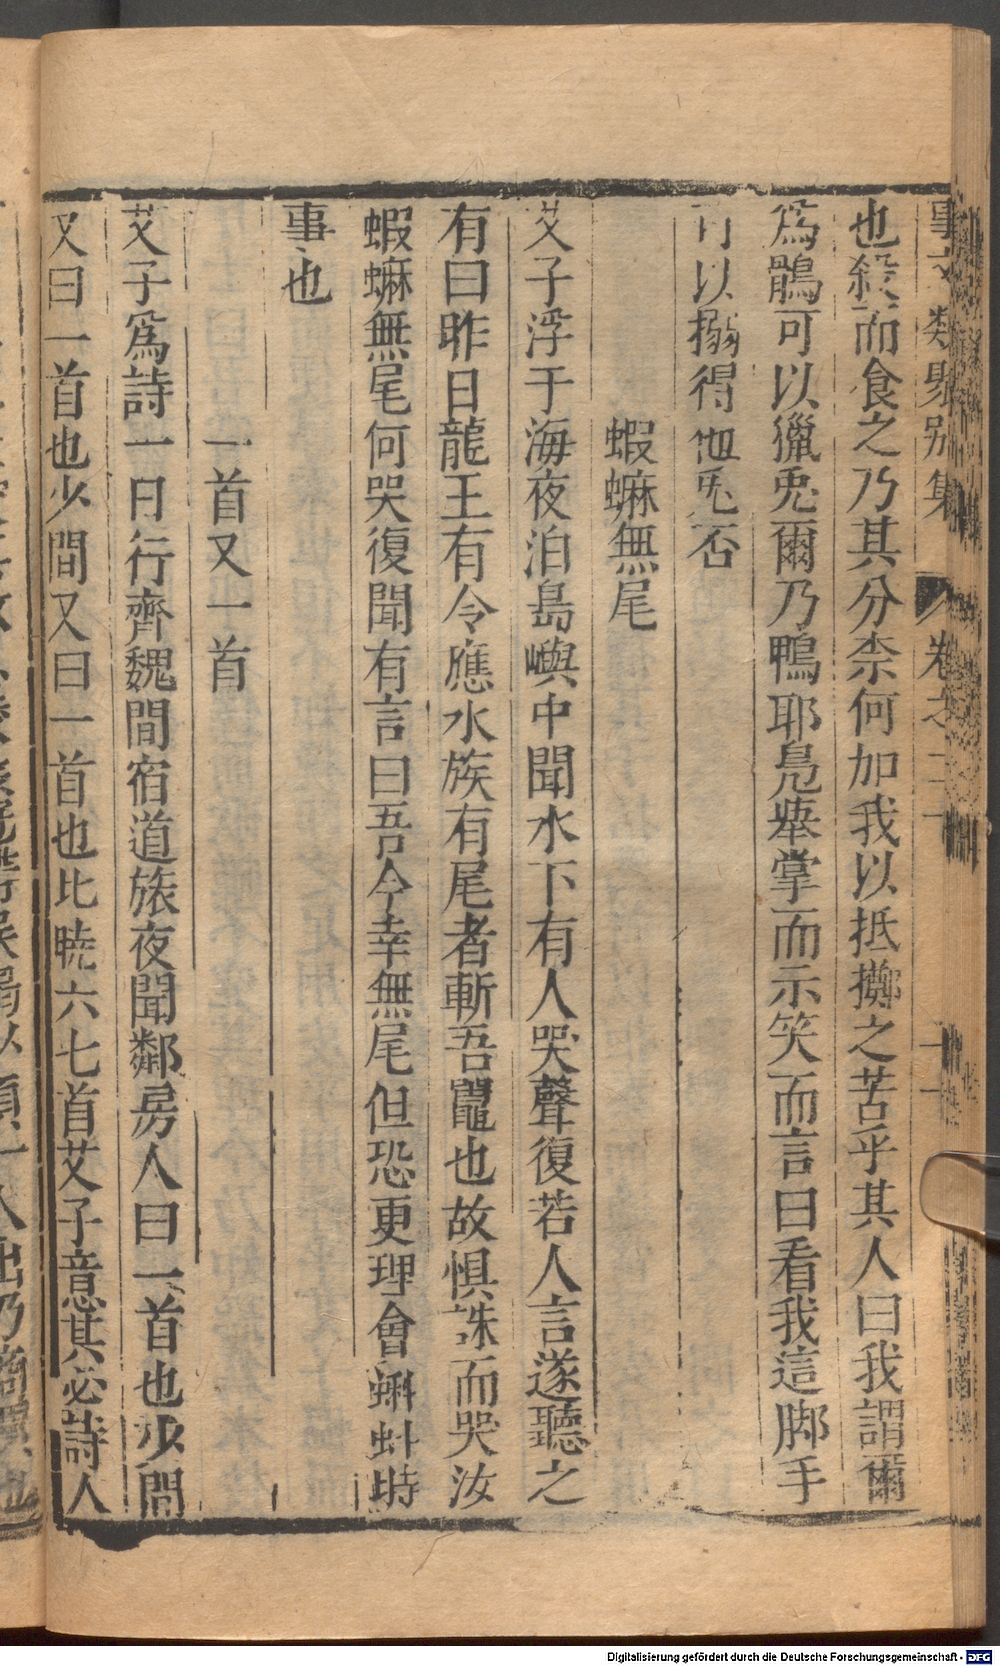 事文類聚别集
卷之二十
也殺而食之乃其分柰何加我以抵擲之苦乎其人曰我謂爾
爲鶻可以獵兎爾乃鴨耶鳬舉掌而示笑而言曰看我這脚手
可以搦得他兎否
蝦蟆無尾
艾子浮于海夜泊島嶼中聞水下有人哭聲復若人言遂聽之
有曰昨日龍王有令應水族有尾者斬吾鼉也故惧誅而哭汝
蝦蟆無尾何哭復聞有言曰吾今幸無尾但恐更理會蝌蚪時
事也
一首又一首
艾子爲詩一日行齊魏間宿道旅夜聞鄰房人曰一首也少間
又曰一首也少間又曰一首也比暁六七首艾子意其必詩人
Digitalisierung gefördert durch die Deutsche Forschungsgemeinschaft - DFG